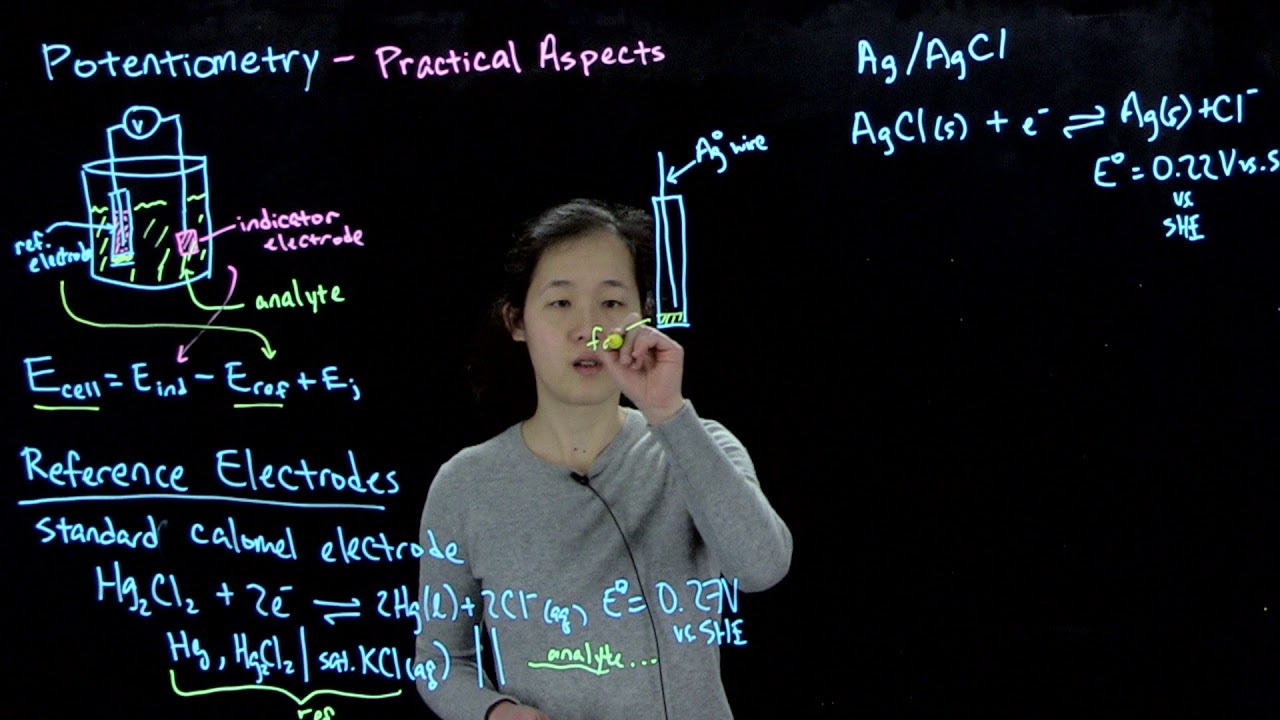 Potentiometry - Practical Aspects
V
ref.
electrode
indicator
electrode
analyte
E cell = E ind - E ref + E j
Reference Electrodes
standard calomel electrode
Hg₂Cl₂ + 2e⁻ ⇌ 2Hg(l) + 2Cl⁻(aq) E° = 0.27V
vs. SHE
Hg, Hg₂Cl₂ | sat. KCl(aq) || analyte...
ref
Ag° wire
Ag/AgCl
AgCl(s) + e⁻ ⇌ Ag(s) + Cl⁻
E° = 0.22V vs. S
vs
SHE